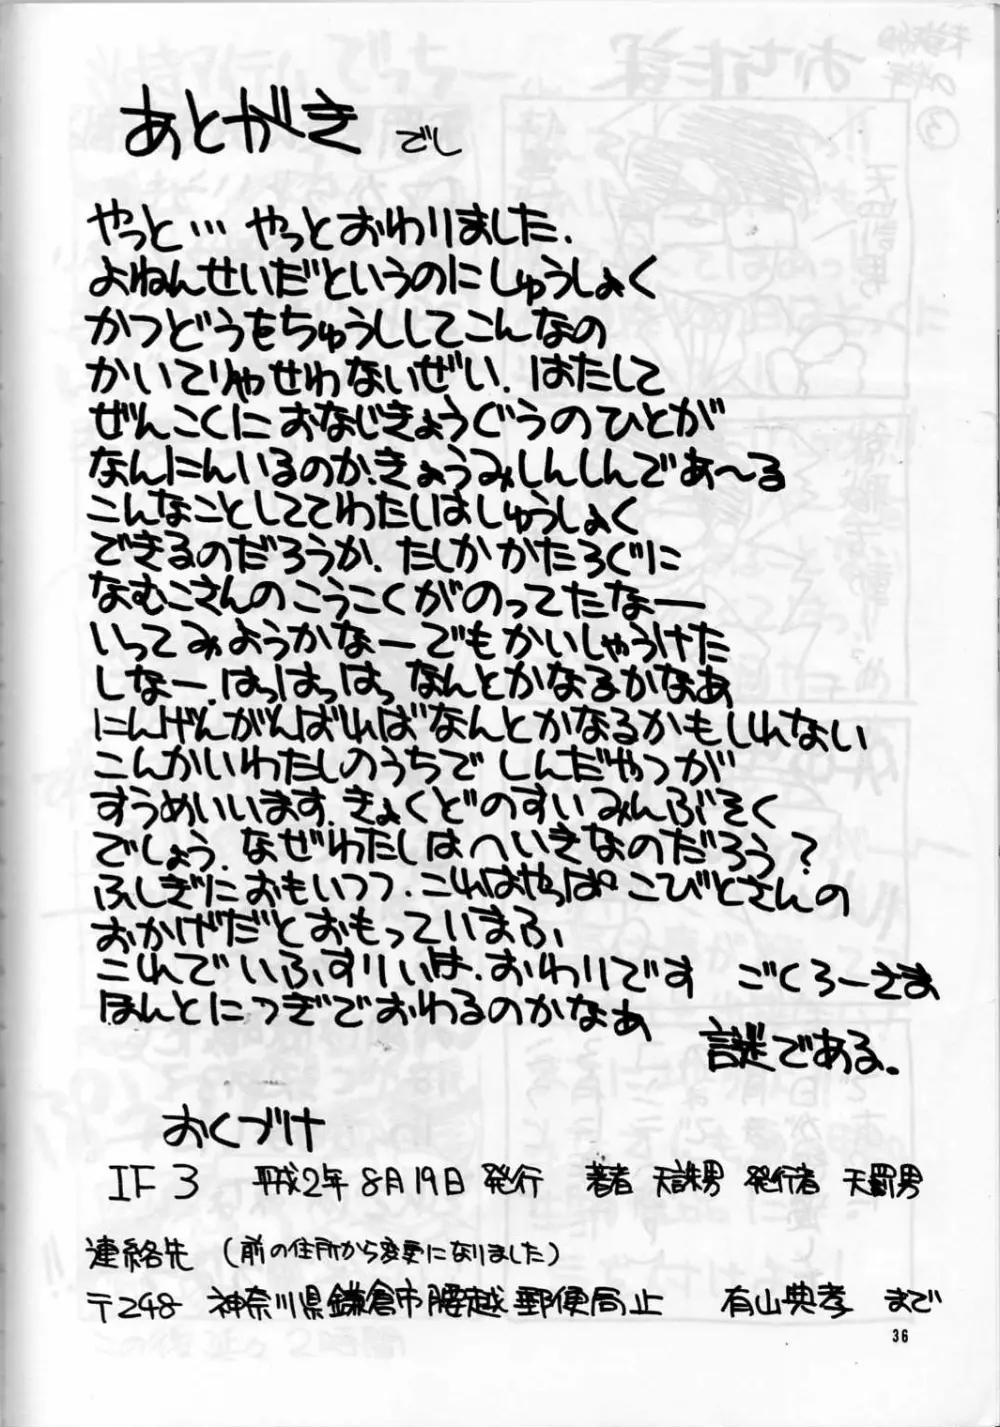 あとがき でし
やっと… やっとおわりました.
よねんせいだというのにしゅうしょく
かつどうをちゅうししてこんなの
かいてりゃせわないぜい. はたして
ぜんこくにおなじきょうぐうのひとが
なんにんいるのか.きょうみしんしんであ〜る
こんなことしててわたしはしゅうしょく
できるのだろうか. たしかかたろぐに
なむこさんのこうこくがのってたなー
いってみようかなーでもかいしゃうけた
しなー.はっはっはっ なんとかなるかなあ
にんげんがんばればなんとかなるかもしれない
こんかいわたしのうちでしんだやつが
すうめいいます.きょくどのすいみんぶそく
でしょう.なぜわたしはへいきなのだろう?
ふしぎにおもいつつ.これはやっぱこびとさんの
おかげだとおもっていまふ
これでいふすりぃは.おわりです ごくろーさま
ほんとにつぎでおわるのかなあ
謎である.
おくづけ
IF3 平成2年8月19日発行 著者 天誅男 発行者 天罰男
連絡先 (前の住所から変更になりました)
〒248 神奈川県鎌倉市腰越郵便局止 有山典孝 まで
36